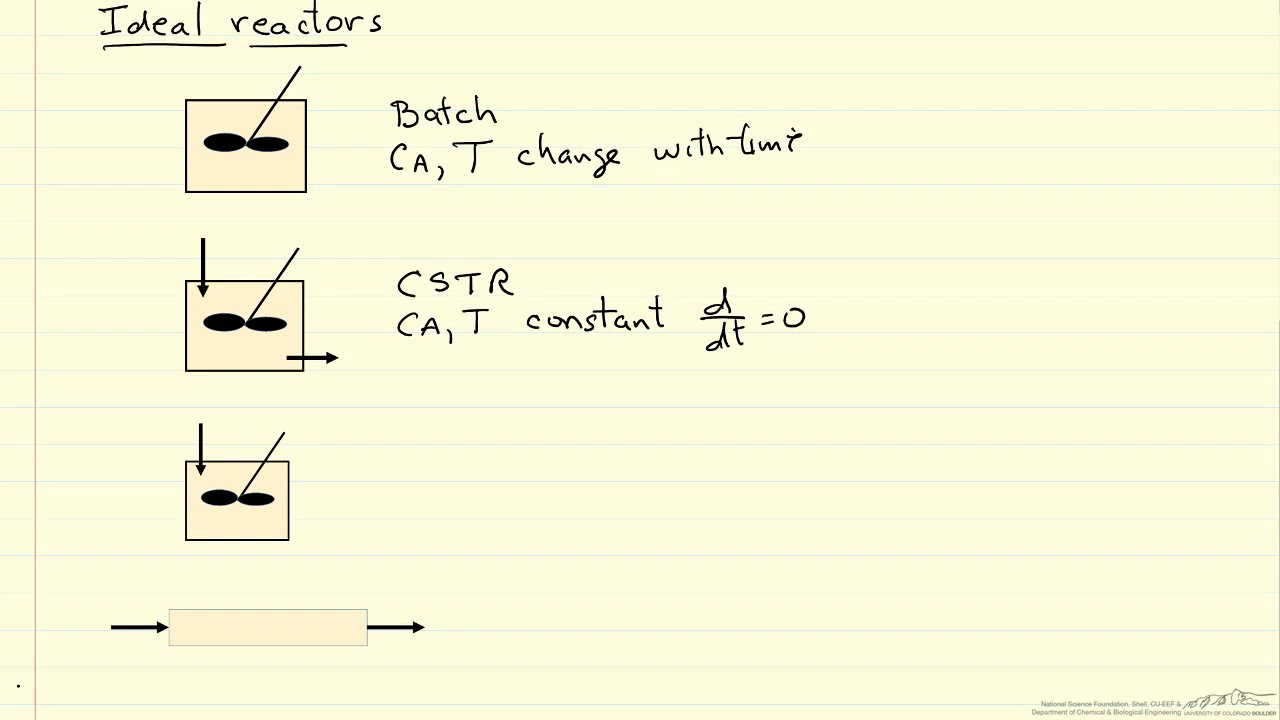 Ideal reactors
Batch
CA, T change with time
CSTR
CA, T constant d/dt = 0
National Science Foundation, Shell, CU-EEF &
Department of Chemical & Biological Engineering UNIVERSITY OF COLORADO BOULDER